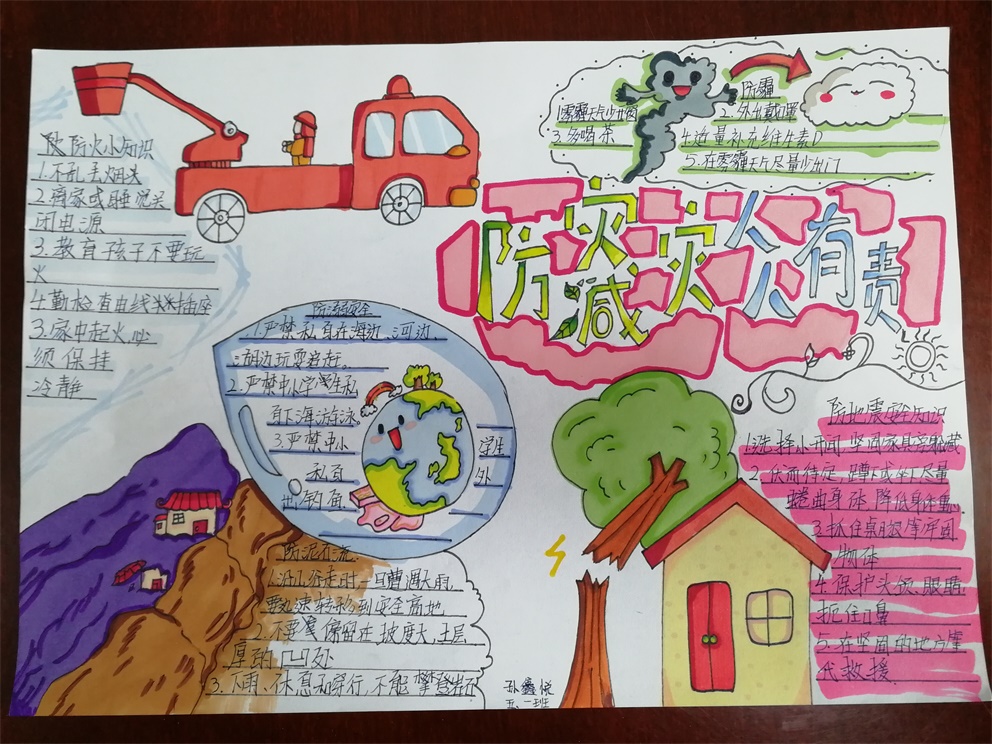 防火小知识
1.不乱丢烟头
2.离家或睡觉关
闭电源
3.教育孩子不要玩
火
4.勤检查电线 插座
3.家中起火 必
须保持
冷静
防霾
1.雾霾天气少开窗
2.外出戴口罩
3.多喝茶
4.适量补充维生素D
5.在雾霾天气尽量少出门
防灾减灾人人有责
防溺安全
1.严禁私自在海边、河边、
湖边玩耍追赶。
2.严禁中小学学生私
自下海游泳。
3.严禁中小
学生
私自
外
出钓鱼
防泥石流
1.沿山谷走时一旦遭遇大雨,
要迅速转移到安全高地
2.不要 停留在坡度大,土层
厚的凹处
3.下雨、休息和穿行,不能攀登岩石
防地震安全知识
1.选择小开间 坚固家具旁躲藏
2.伏而待定 蹲下或坐下尽量
蜷曲身体 降低身体重心.
3.抓住桌腿等牢固
物体
4.保护头颈、眼睛
捂住口鼻
5.在坚固的地方等
代救援.
孙鑫悦
五.一班